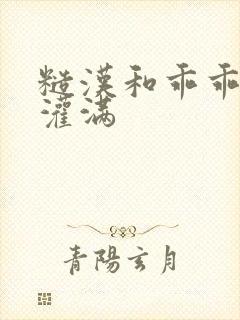 糙漢和乖乖
灌满
青陽玄月